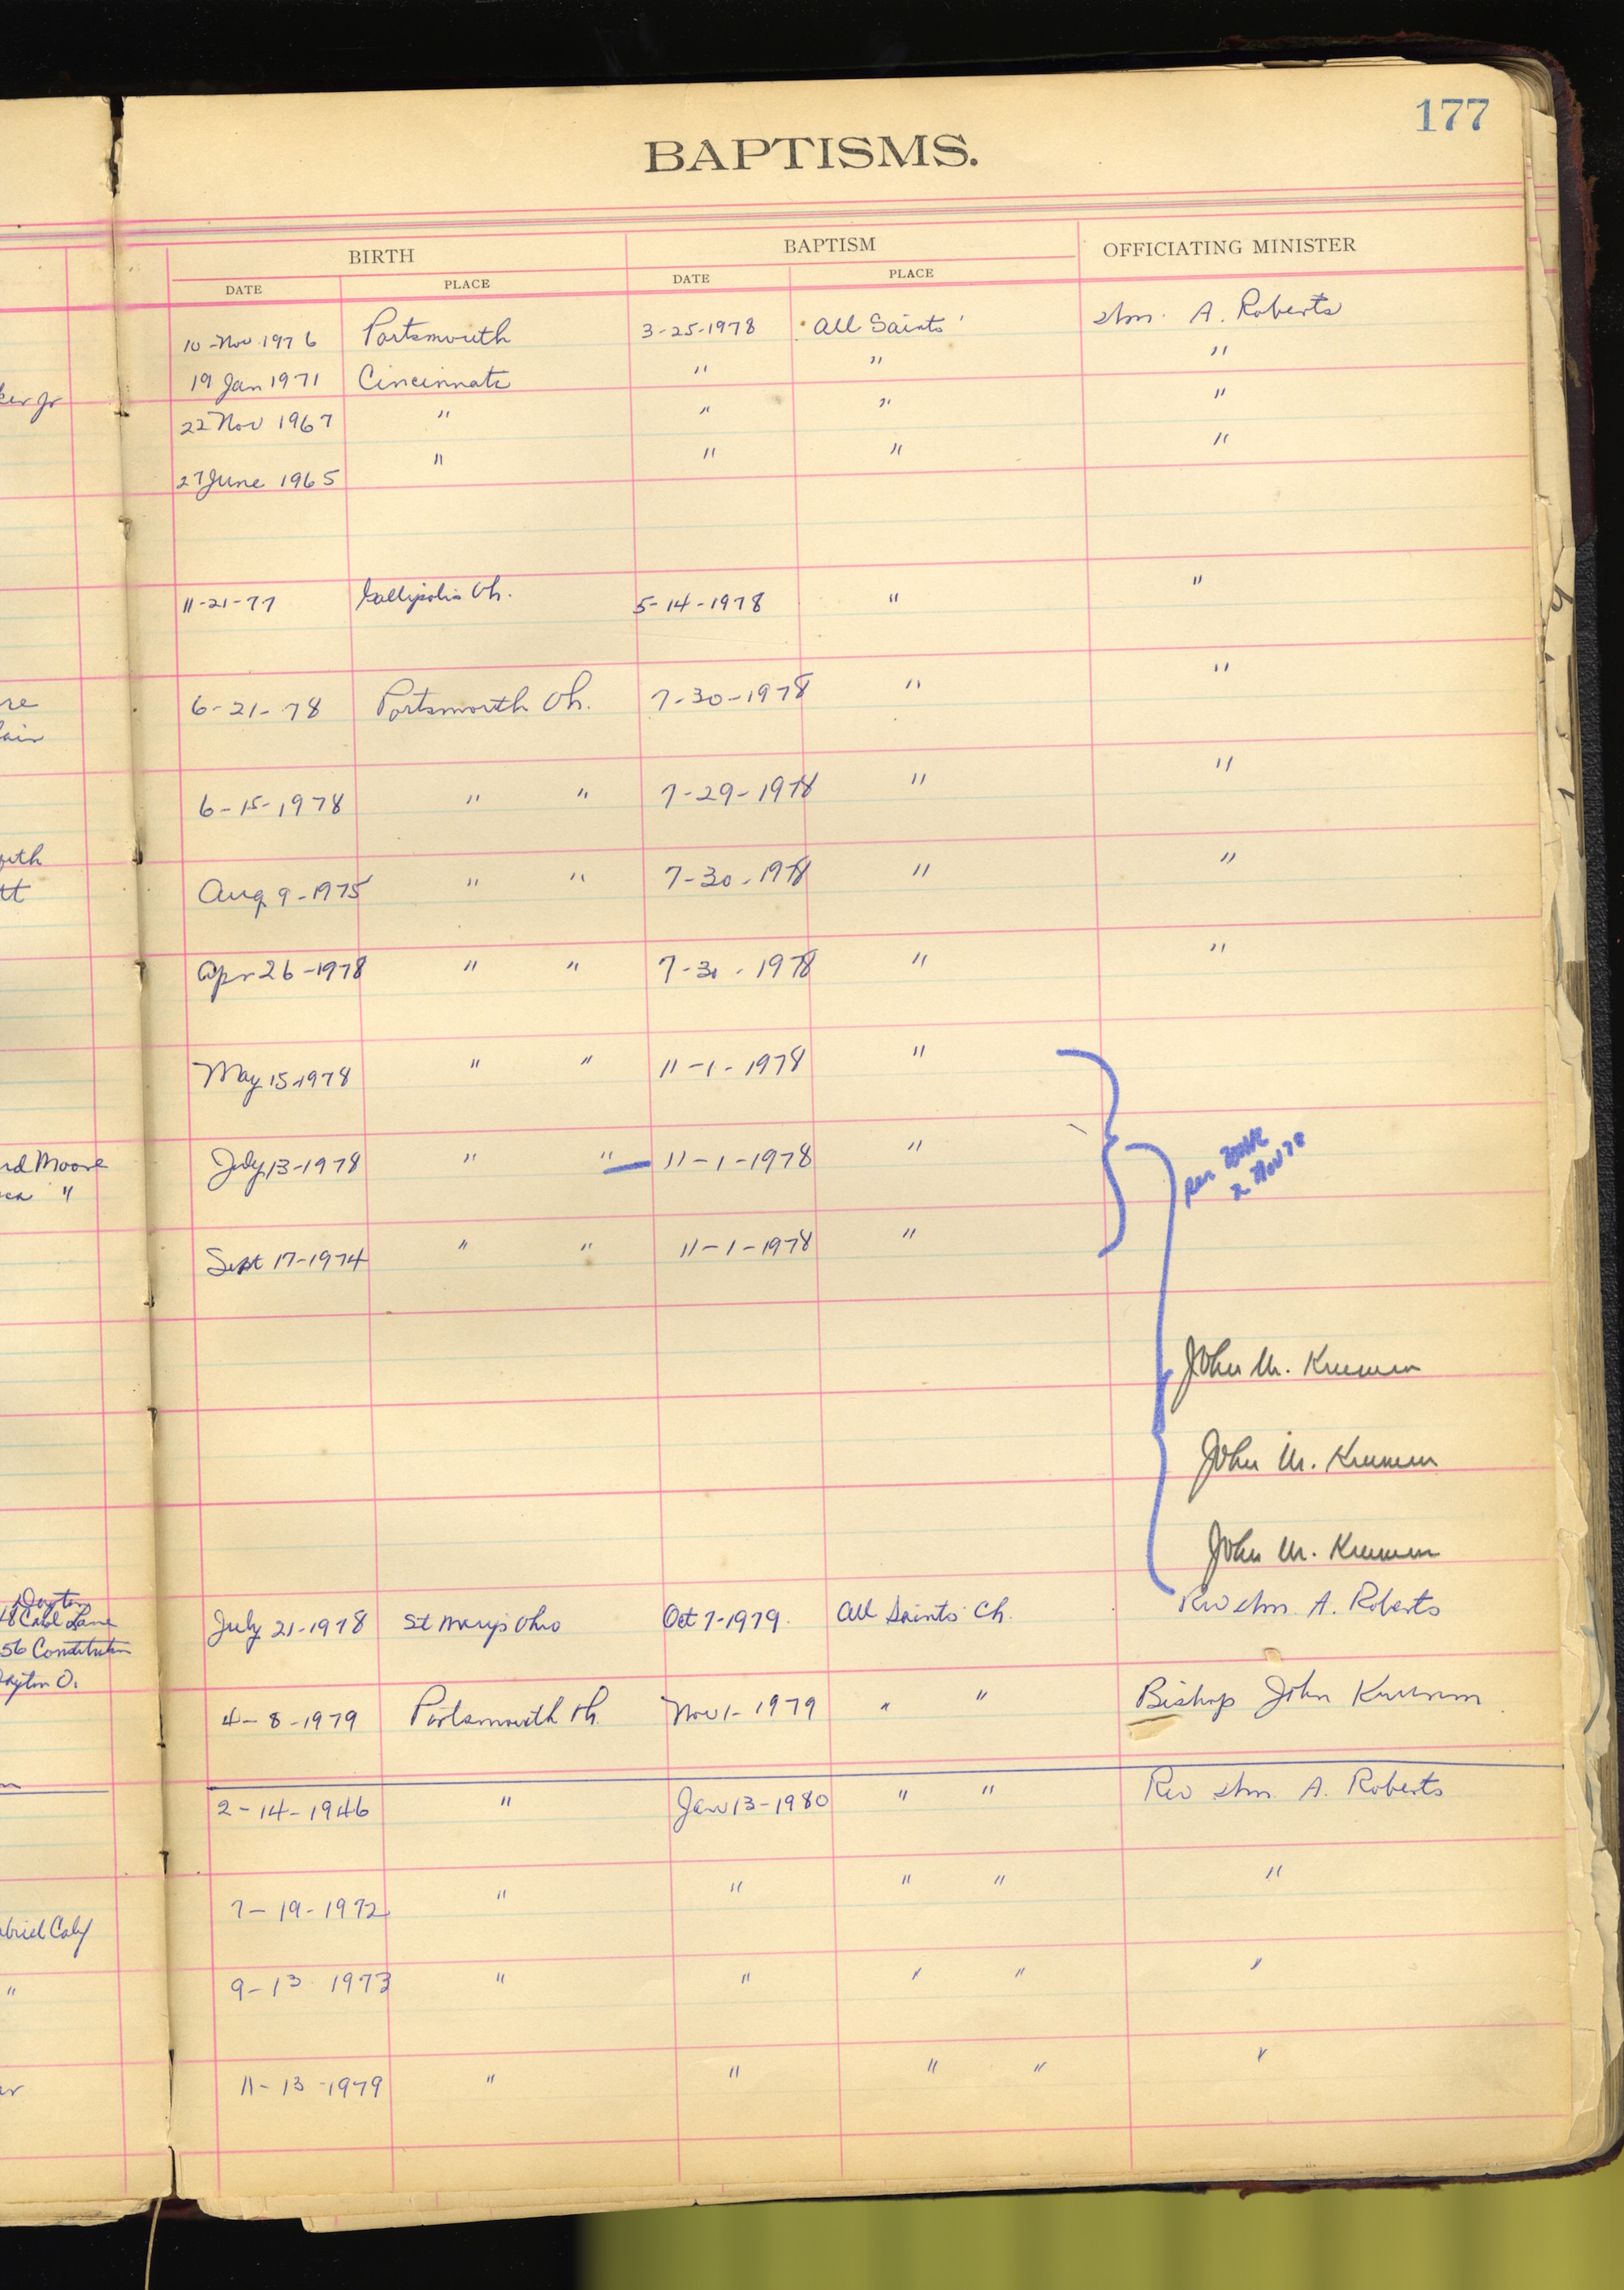 177
BAPTISMS.
BIRTH BAPTISM OFFICIATING MINISTER
DATE PLACE DATE PLACE
10-Nov 1976 Portsmouth 3-25-1978 All Saints' Wm. A. Roberts
19 Jan 1971 Cincinnati " " "
ker Jr 22 Nov 1967 " " " "
27 June 1965 " " " "
11-21-77 Gallipolis Oh. 5-14-1978 " "
re 6-21-78 Portsmouth Oh. 7-30-1978 " "
lair
6-15-1978 " " 7-29-1978 " "
outh
tt Aug 9-1975 " " 7-30-1978 " "
Apr 26-1978 " " 7-30-1978 " "
May 15-1978 " " 11-1-1978 "
rd Moore July 13-1978 " " 11-1-1978 "
"
2 Nov 78
Sept 17-1974 " " 11-1-1978 "
John M. Krumm
John M. Krumm
John M. Krumm
Dayton
Lane July 21-1978 St Marys Ohio Oct 7-1979. All Saints Ch. Rev Wm. A. Roberts
56 Constitution
Dayton O.
4-8-1979 Portsmouth Oh. Nov 1-1979 " " Bishop John Krumm
2-14-1946 " Jan 13-1980 " " Rev Wm A. Roberts
7-19-1972 " " " " "
abriel Calif
" 9-13 1973 " " " " "
11-13-1979 " " " " "